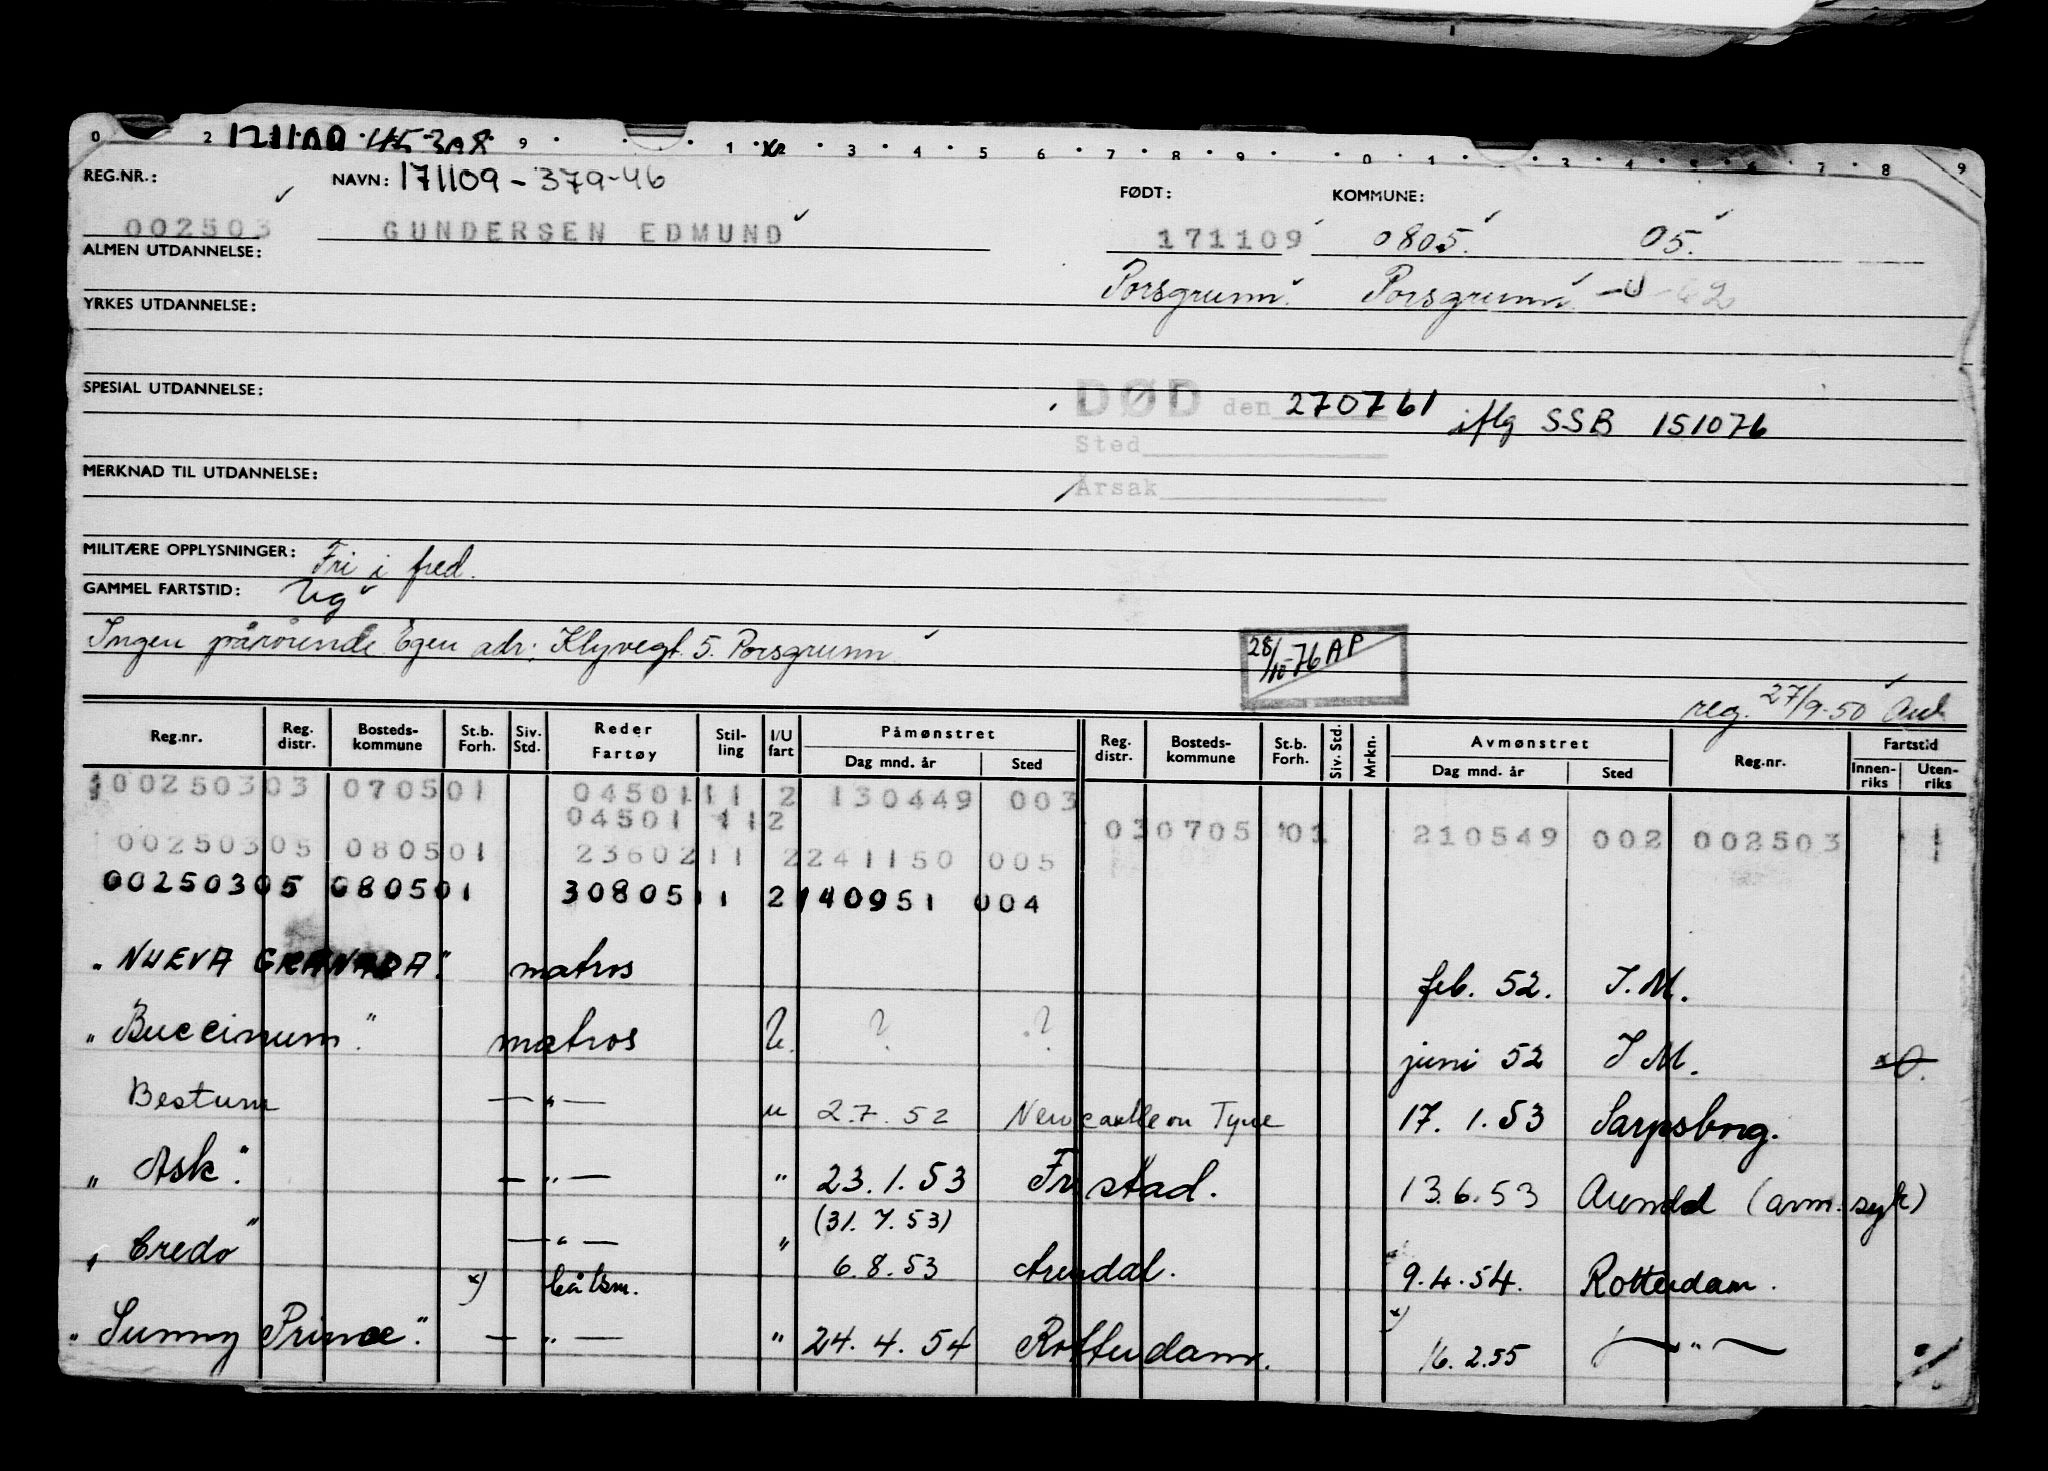 0 2 171109 45308 9 1 2 3 4 5 6 7 8 9 0 1 3 4 5 6 7 8 9
REG.NR.: NAVN: 171109-379-46 FØDT: KOMMUNE:
002503 GUNDERSEN EDMUND 171109 0805. 05.
ALMEN UTDANNELSE:
Porsgrunn. Porsgrunn
YRKES UTDANNELSE:
SPESIAL UTDANNELSE:
DØD den 270761 iflg SSB 151076
Sted
MERKNAD TIL UTDANNELSE:
Årsak
MILITÆRE OPPLYSNINGER: Fri i fred.
GAMMEL FARTSTID: Ug
Ingen pårørende. Egen adr: Klyvegt. 5. Porsgrunn
28/10-76 AP
reg. 27/9-50
Reg.nr. Reg. distr. Bosteds-kommune St.b. Forh. Siv. Std. Reder Fartøy Stil-ling I/U fart Påmønstret Dag mnd. år Sted Reg. distr. Bosteds-kommune St.b. Forh. Siv. Std. Mrkn. Avmønstret Dag mnd. år Sted Reg.nr. Fartstid Innen-riks Uten-riks
00250303 070501 0450111 2 130449 003
04501 112 030705 01 210549 002 002503 1
00250305 080501 2360211 2241150 005
00250305 080501 3080511 2140951 004
"NUEVA GRANADA". matros feb. 52. I.M.
"Buccinum". matros U. ? ? juni 52 I M.
Bestum — " — u 2.7.52 Newcastle on Tyne 17.1.53 Sarpsborg.
"Ask". — " — " 23.1.53 Fr.stad. 13.6.53 Arendal (avm. syk)
(31.7.53)
"Credo" — " — " 6.8.53 Arendal. 9.4.54. Rotterdam.
x) båtsm.
"Sunny Prince". — " — " 24.4.54 Rotterdam. x) 16.2.55 — " —